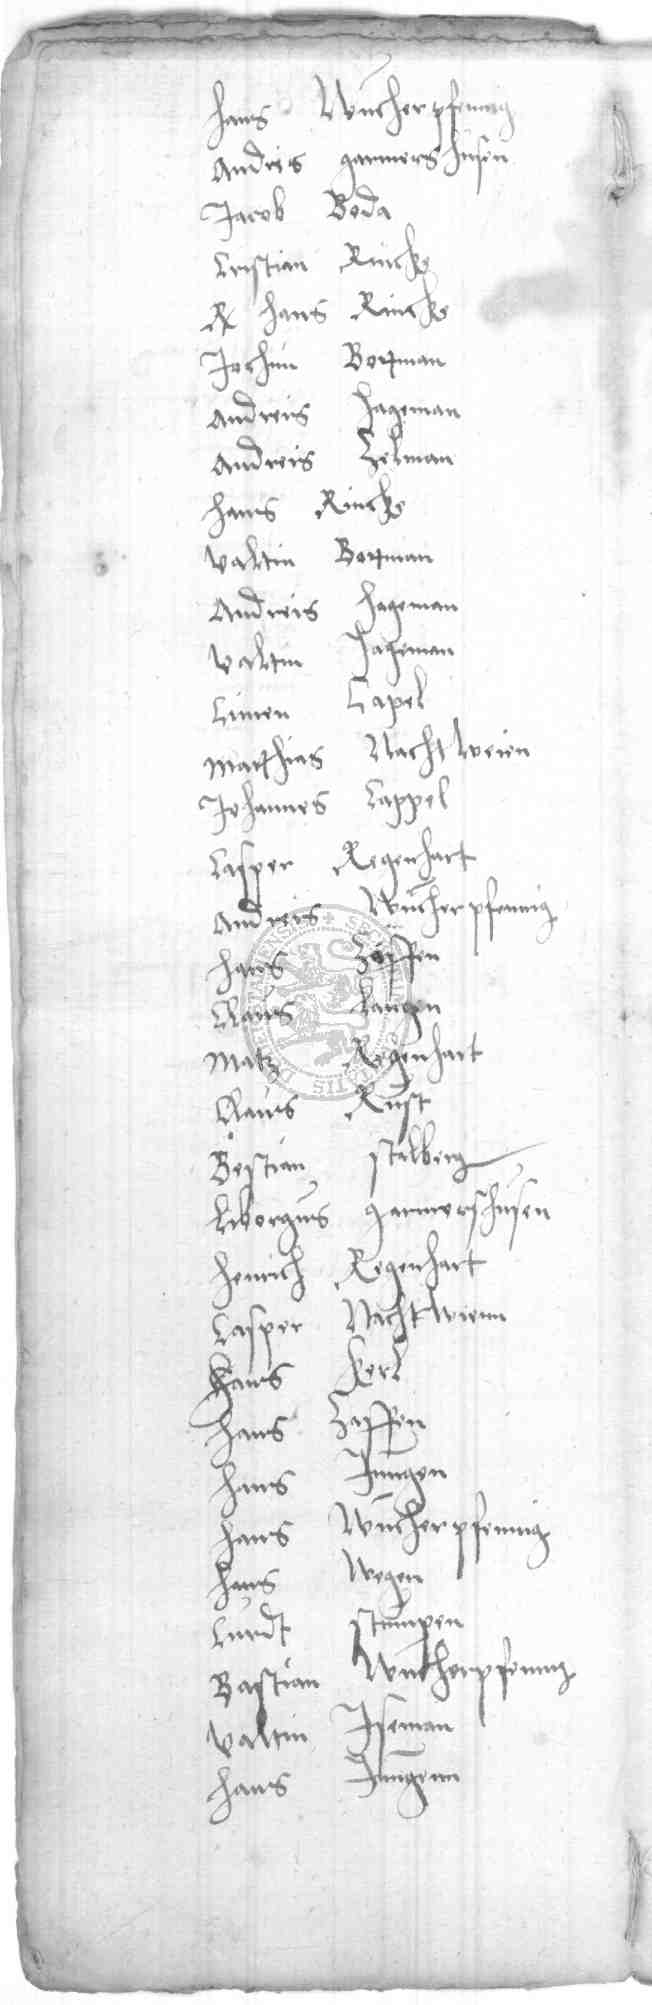 Hans Wucherpfennig
Andreis Garmershusen
Jacob Boda
Cristian Rincke
R Hans Rincke
Jochim Bortman
Andreis Hageman
Andreis Helman
Hans Rincke
Valtin Bortman
Andreis Hageman
Valtin Hageman
Simen Capel
Matthias Nachtweien
Johannes Cappel
Casper Regenhart
Andreis Wucherpfennig
Hans Zöpffen
Claus Langen
Matz Regenhart
Claus Rust
Bestian Stalberg
Liborgius Garmershusen
Henrich Regenhart
Casper Nachtwienn
Hans Kerl
Hans Zapffen
Hans Jungen
Hans Wucherpfennig
Hans Wegen
Curdt Stumpen
Bastian Wucherpfennig
Valtin Iseman
Hans Jungenn